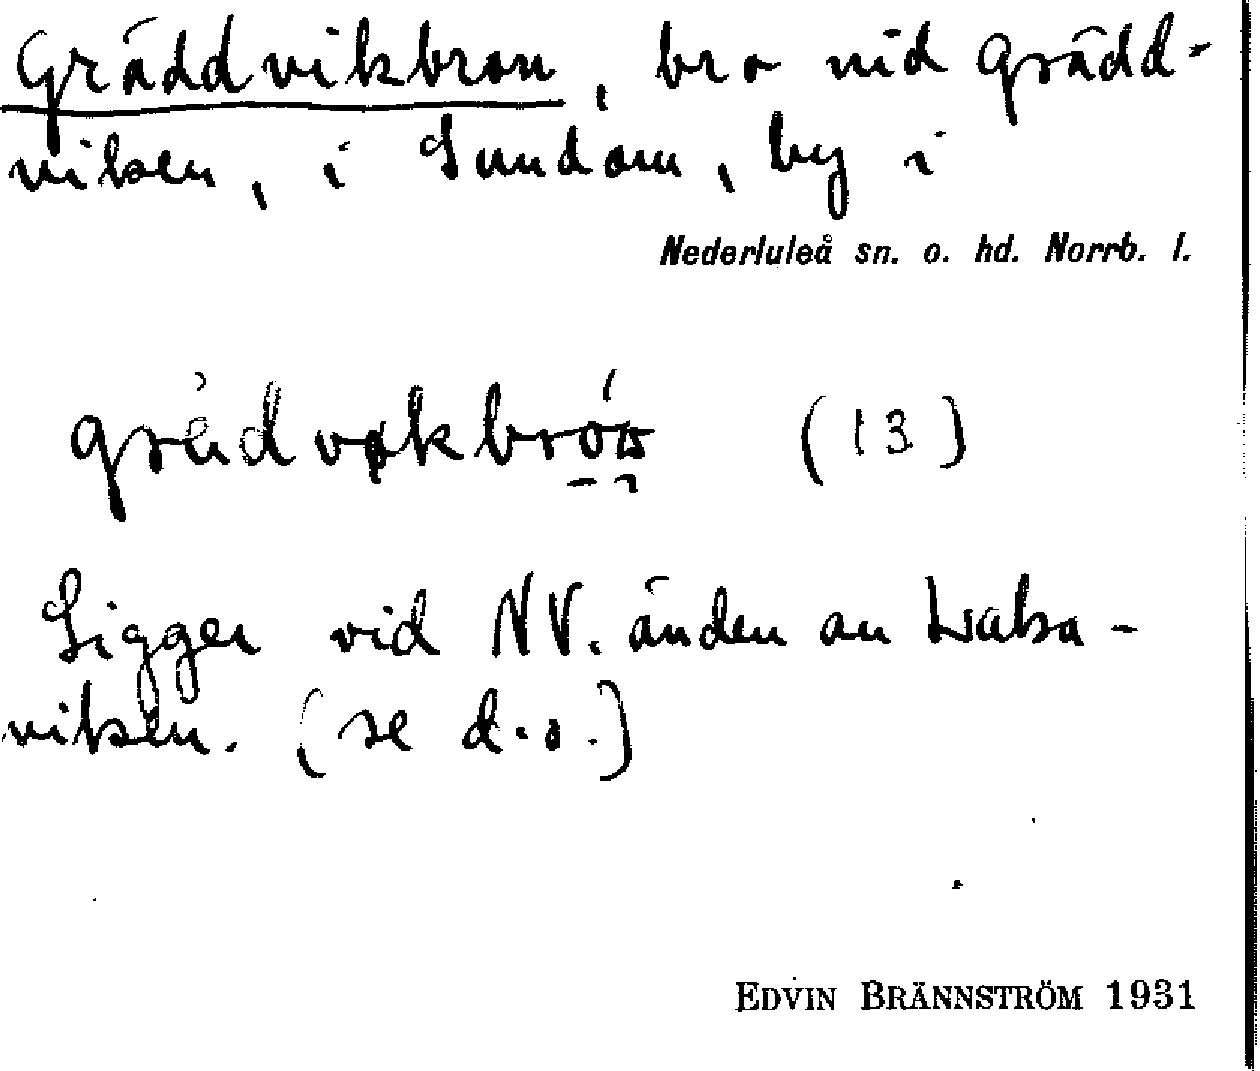 Gräddvikbron, bro vid Grädd-
viken, i Sundom, by i
Nederluleå sn. o. hd. Norrb. l.
(13)
Ligger vid NV. änden av
viken. (se d.o.)
EDVIN BRÄNNSTRÖM 1931